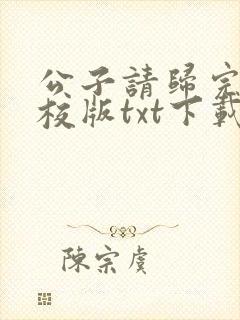 公子請歸宗
校版txt下載
陳宗虞